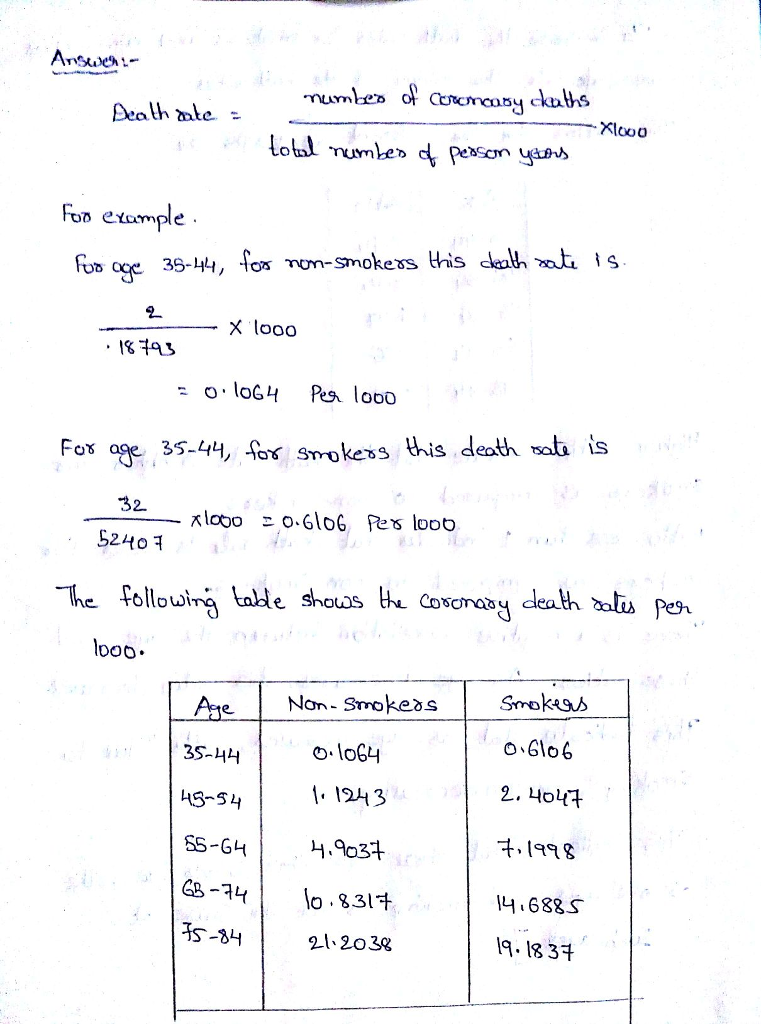 Answer:-
Death rate = number of coronary deaths
total number of person years
X1000
For example.
For age 35-44, for non-smokers this death rate is.
2
18793
X 1000
= 0.1064 Per 1000
For age 35-44, for smokers this death rate is
32
52407
x1000 = 0.6106 Per 1000
The following table shows the coronary death rates per
1000.
Age Non-smokers Smokers
35-44 0.1064 0.6106
45-54 1.1243 2.4047
55-64 4.9037 7.1998
65-74 10.8317 14.6885
75-84 21.2038 19.1837